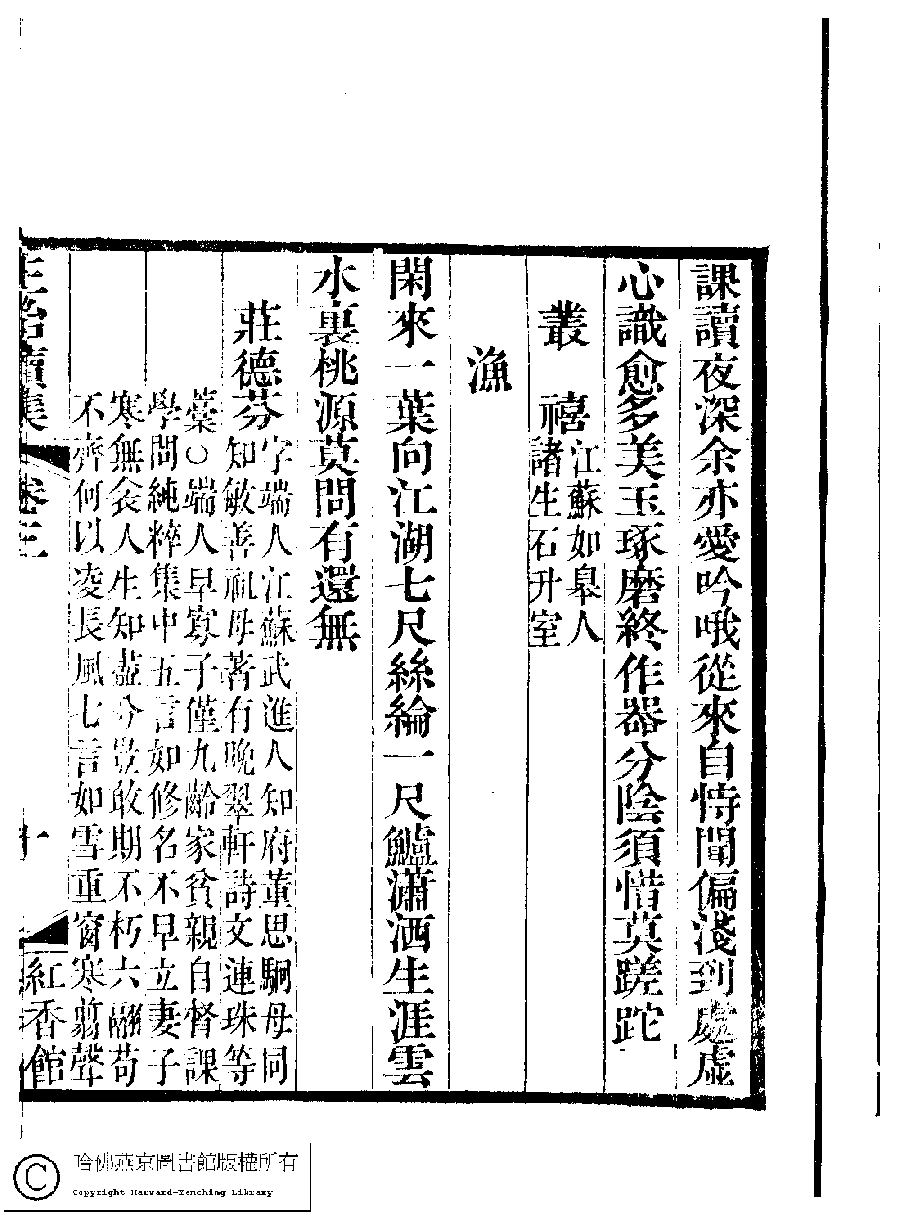 課讀夜深余亦愛吟哦從來自恃聞偏淺到處虛
心識愈多美玉琢磨終作器分陰須惜莫蹉跎
叢禧
江蘇如皋人
諸生石升室
漁
閑來一葉向江湖七尺絲綸一尺鱸瀟洒生涯雲
水裏桃源莫問有還無
莊德芬
字端人江蘇武進人知府董思駉母同
知敏善祖母著有晚翠軒詩文連珠等
藳○端人早寡子僅九齡家貧親自督課
學問純粹集中五言如修名不早立妻子
寒無衾人生知盡分豈敢期不朽六翮苟
不齊何以凌長風七言如雪重窗寒翦聲
正始續集 卷三 十 紅香館
哈佛燕京圖書館版權所有
Copyright Harvard-Yenching Library